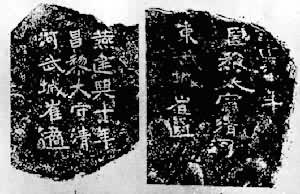 興十年
昌黎太守清河
東武城崔遹
燕建興十年
昌黎大守清
河武城崔遹